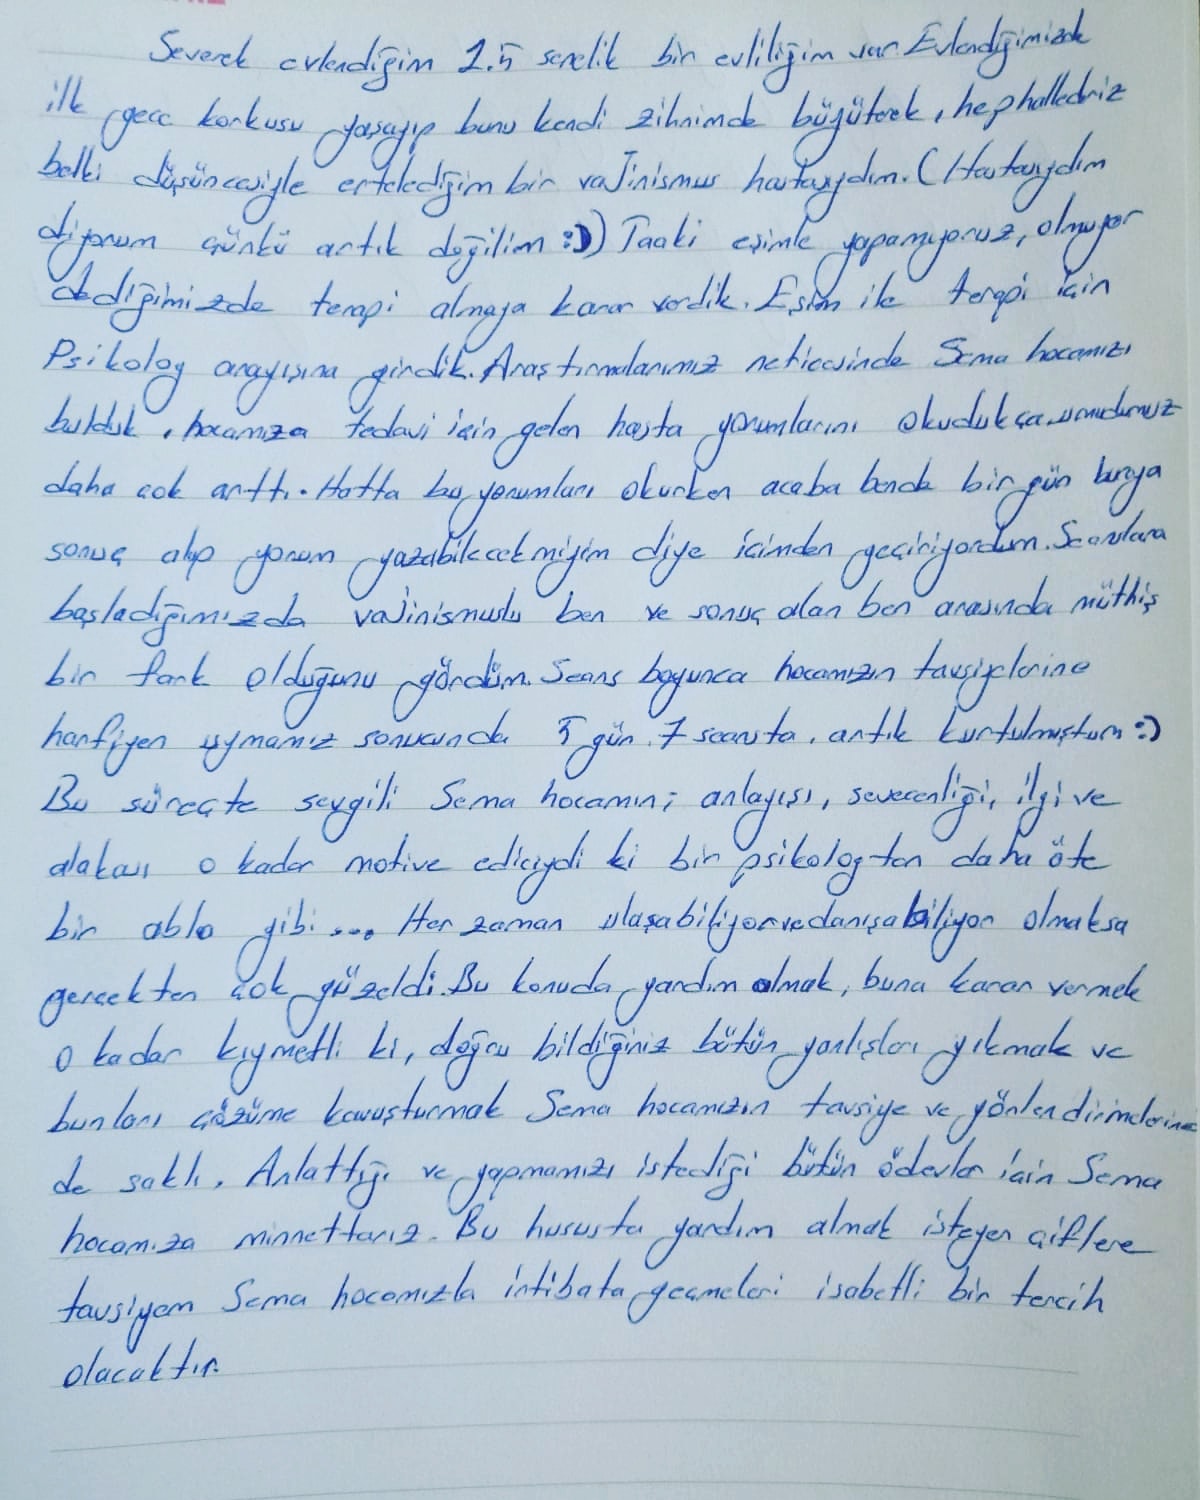 Severek evlendiğim 2.5 senelik bir evliliğim var. Evlendiğimizde
ilk gece korkusu yaşayıp bunu kendi zihnimde büyüterek, hep hallederiz
belki düşüncesiyle ertelediğim bir vajinismus hastasıydım. (Hastaydım
diyorum çünkü artık değilim :)) Taaki eşimle yapamıyoruz, olmuyor
dediğimizde terapi almaya karar verdik. Eşim ile terapi için
Psikolog arayışına girdik. Araştırmalarımız neticesinde Sema hocamızı
bulduk, hocamıza tedavi için gelen hasta yorumlarını okudukça umudumuz
daha çok arttı. Hatta bu yorumları okurken acaba bende bir gün buraya
sonuç alıp yorum yazabilecekmiyim diye içimden geçiriyordum. Seanslara
başladığımızda vajinismuslu ben ve sonuç alan ben arasında müthiş
bir fark olduğunu gördüm. Seans boyunca hocamızın tavsiyelerine
harfiyen uymamız sonucunda 5 gün 7 seansta, artık kurtulmuştum :)
Bu süreçte sevgili Sema hocamın; anlayışı, sevecenliği, ilgi ve
alakası o kadar motive ediciydi ki bir psikologtan daha öte
bir abla gibi.... Her zaman ulaşabiliyor ve danışabiliyor olmaksa
gerçekten çok güzeldi. Bu konuda yardım almak, buna karar vermek
o kadar kıymetli ki, doğru bildiğiniz bütün yanlışları yıkmak ve
bunları çözüme kavuşturmak Sema hocamızın tavsiye ve yönlendirmelerine
de saklı. Anlattığı ve yapmamızı istediği bütün ödevler için Sema
hocamıza minnettarız. Bu hususta yardım almak isteyen çiftlere
tavsiyem Sema hocamızla irtibata geçmeleri isabetli bir tercih
olacaktır.